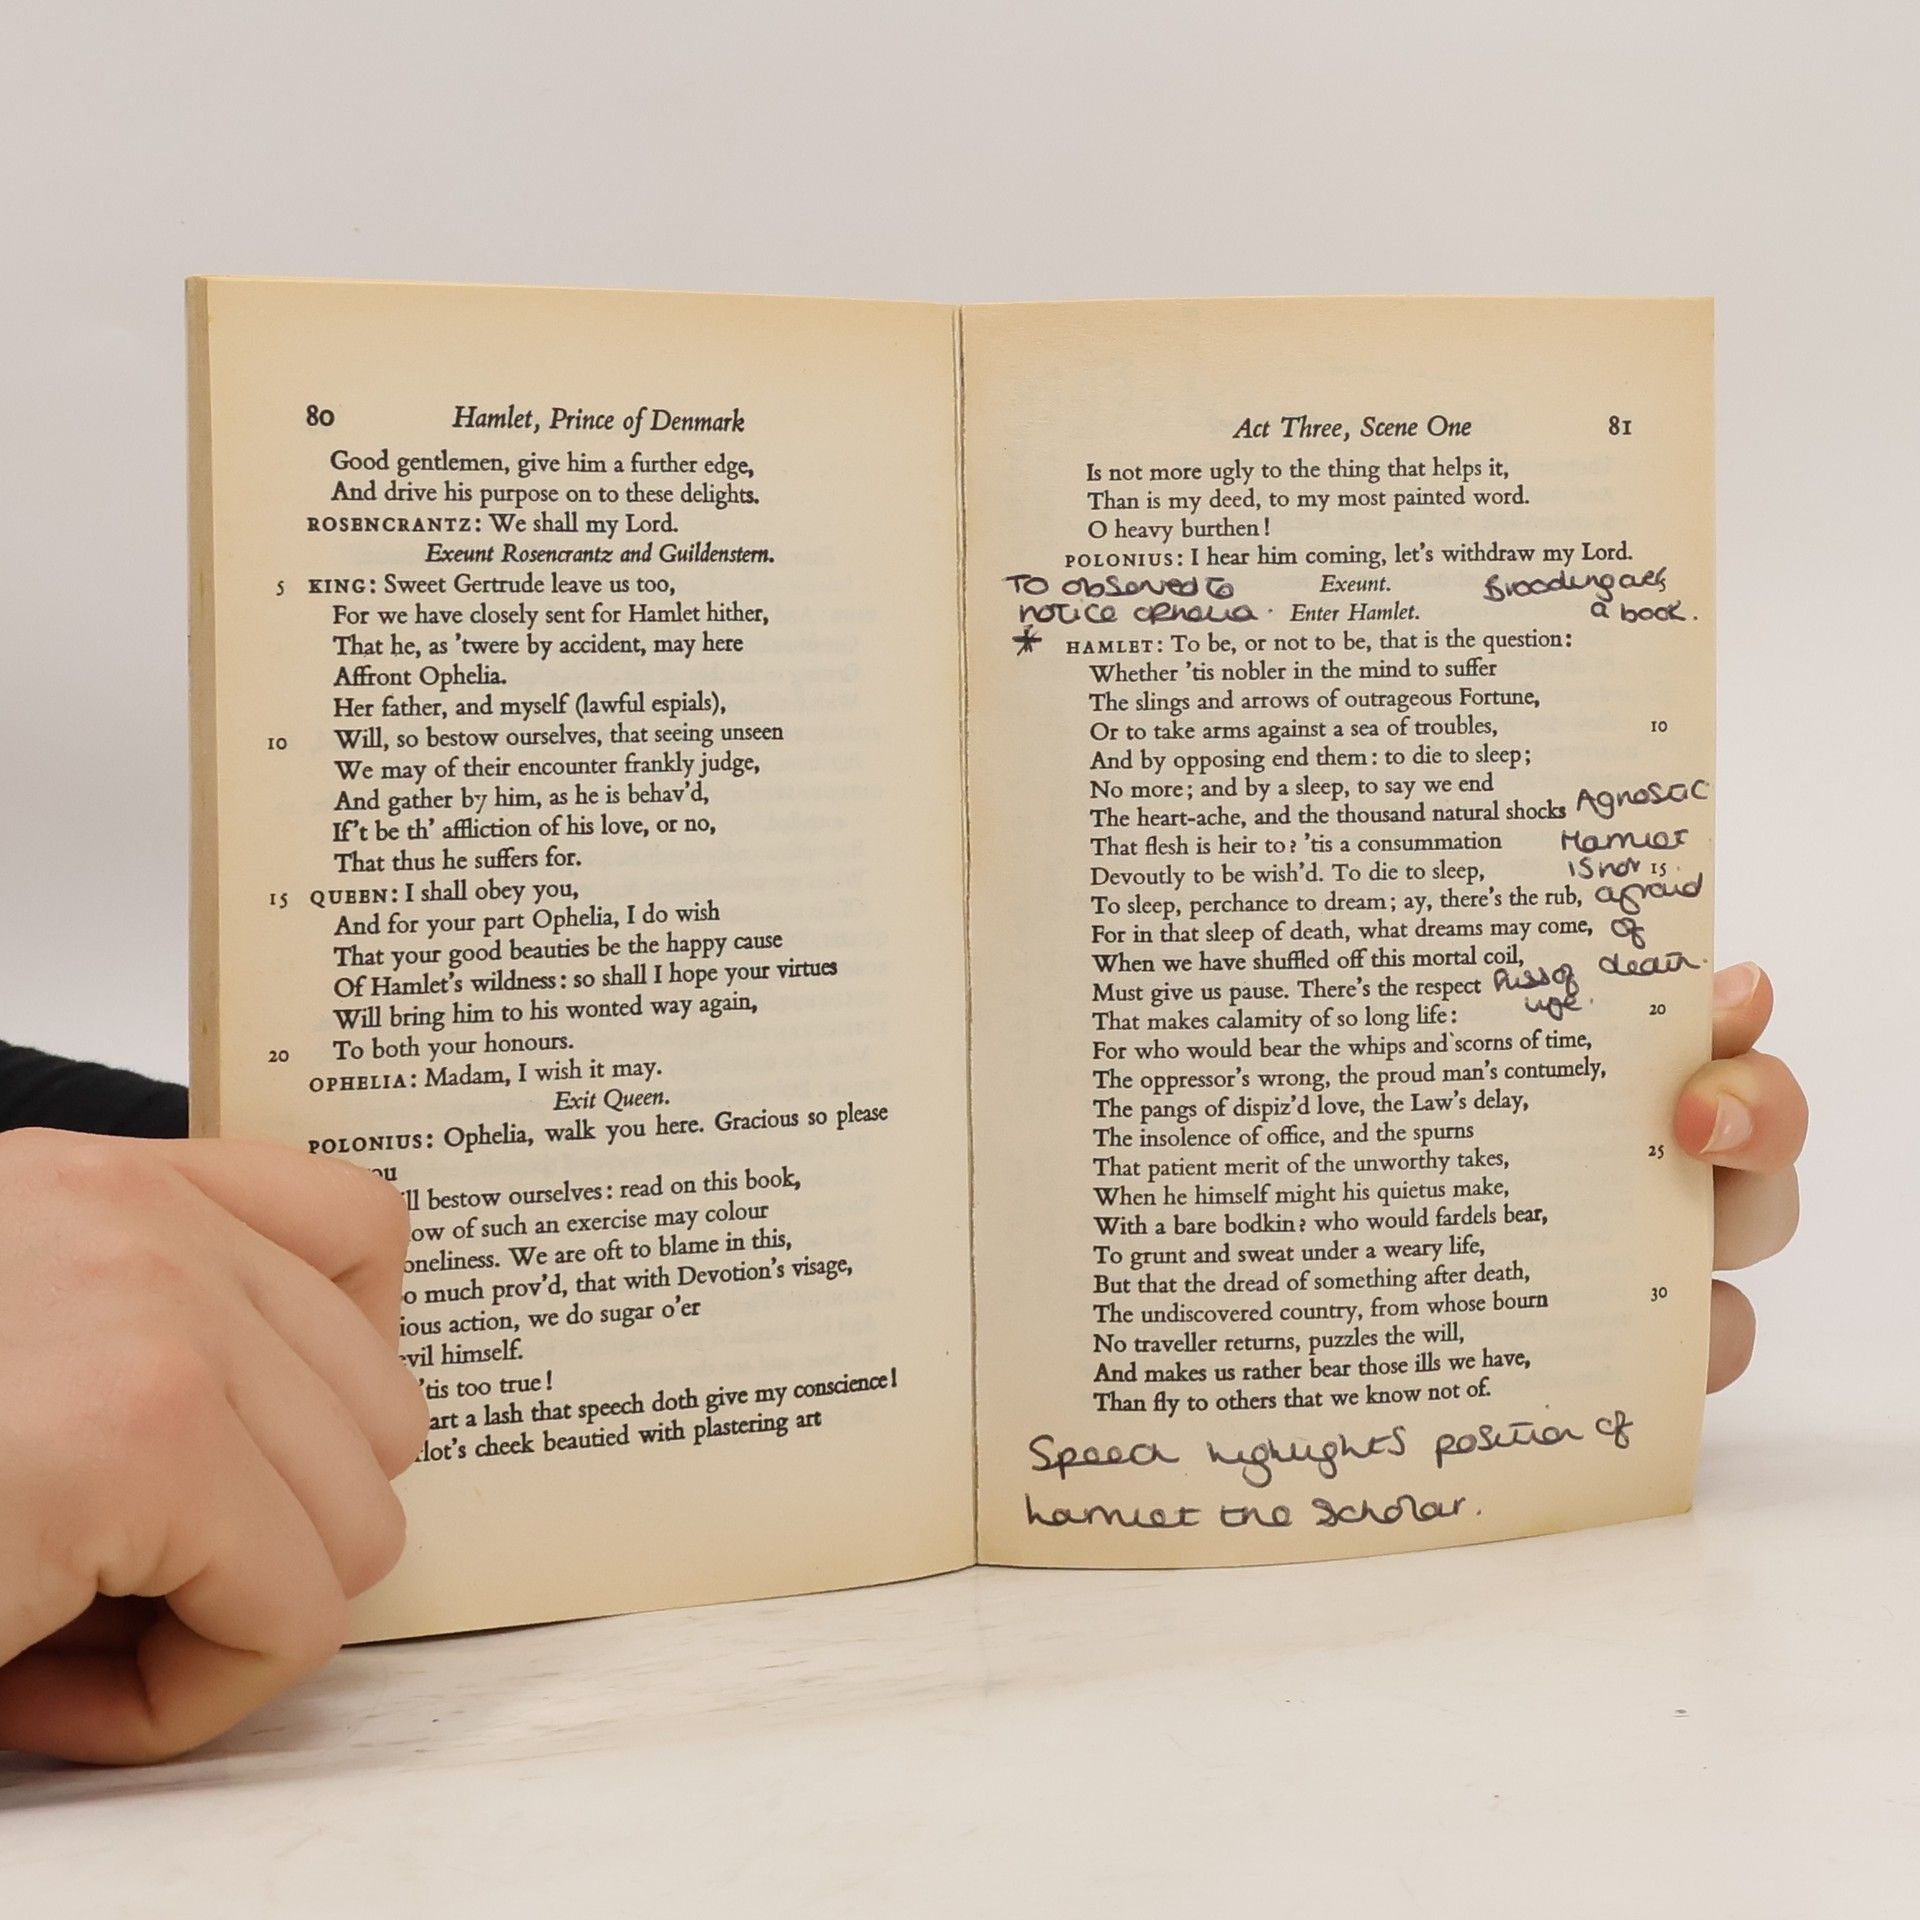 80 Hamlet, Prince of Denmark
Good gentlemen, give him a further edge,
And drive his purpose on to these delights.
ROSENCRANTZ: We shall my Lord.
Exeunt Rosencrantz and Guildenstern.
5 KING: Sweet Gertrude leave us too,
For we have closely sent for Hamlet hither,
That he, as 'twere by accident, may here
Affront Ophelia.
Her father, and myself (lawful espials),
10 Will, so bestow ourselves, that seeing unseen
We may of their encounter frankly judge,
And gather by him, as he is behav'd,
If't be th' affliction of his love, or no,
That thus he suffers for.
15 QUEEN: I shall obey you,
And for your part Ophelia, I do wish
That your good beauties be the happy cause
Of Hamlet's wildness: so shall I hope your virtues
Will bring him to his wonted way again,
20 To both your honours.
OPHELIA: Madam, I wish it may.
Exit Queen.
POLONIUS: Ophelia, walk you here. Gracious so please
ou
ll bestow ourselves: read on this book,
ow of such an exercise may colour
oneliness. We are oft to blame in this,
o much prov'd, that with Devotion's visage,
ious action, we do sugar o'er
evil himself.
'tis too true!
art a lash that speech doth give my conscience!
lot's cheek beautied with plastering art
Act Three, Scene One 81
Is not more ugly to the thing that helps it,
Than is my deed, to my most painted word.
O heavy burthen!
POLONIUS: I hear him coming, let's withdraw my Lord.
To observed to Exeunt. Brooding over
notice ophelia. Enter Hamlet. a book.
* HAMLET: To be, or not to be, that is the question:
Whether 'tis nobler in the mind to suffer
The slings and arrows of outrageous Fortune,
Or to take arms against a sea of troubles, 10
And by opposing end them: to die to sleep;
No more; and by a sleep, to say we end
The heart-ache, and the thousand natural shocks Agnostic
That flesh is heir to? 'tis a consummation Hamlet
Devoutly to be wish'd. To die to sleep, is not 15
To sleep, perchance to dream; ay, there's the rub, afraid
For in that sleep of death, what dreams may come, of
When we have shuffled off this mortal coil, death.
Must give us pause. There's the respect of
That makes calamity of so long life: life. 20
For who would bear the whips and scorns of time,
The oppressor's wrong, the proud man's contumely,
The pangs of dispiz'd love, the Law's delay,
The insolence of office, and the spurns
That patient merit of the unworthy takes, 25
When he himself might his quietus make,
With a bare bodkin? who would fardels bear,
To grunt and sweat under a weary life,
But that the dread of something after death,
The undiscovered country, from whose bourn 30
No traveller returns, puzzles the will,
And makes us rather bear those ills we have,
Than fly to others that we know not of.
Speech highlights position of
hamlet the Scholar.